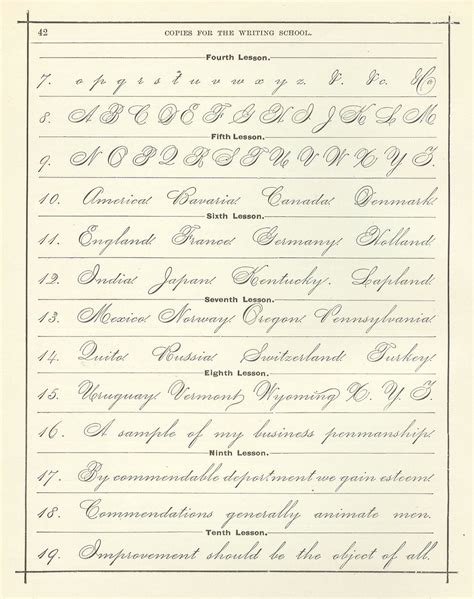 42 COPIES FOR THE WRITING SCHOOL.
Fourth Lesson.
7. o p q r s t u v w x y z. &. &c. No
8. A B C D E F G H I J K L M
Fifth Lesson.
9. N O P Q R S T U V W X Y Z.
10. America Bavaria Canada Denmark
Sixth Lesson.
11. England France Germany Holland
12. India Japan Kentucky. Lapland
Seventh Lesson.
13. Mexico Norway Oregon Pennsylvania
14. Quito Russia Switzerland Turkey
Eighth Lesson.
15. Uruguay Vermont Wyoming X. Y. Z.
16. A sample of my business penmanship.
Ninth Lesson.
17. By commendable deportment we gain esteem
18. Commendations generally animate men.
Tenth Lesson.
19. Improvement should be the object of all.